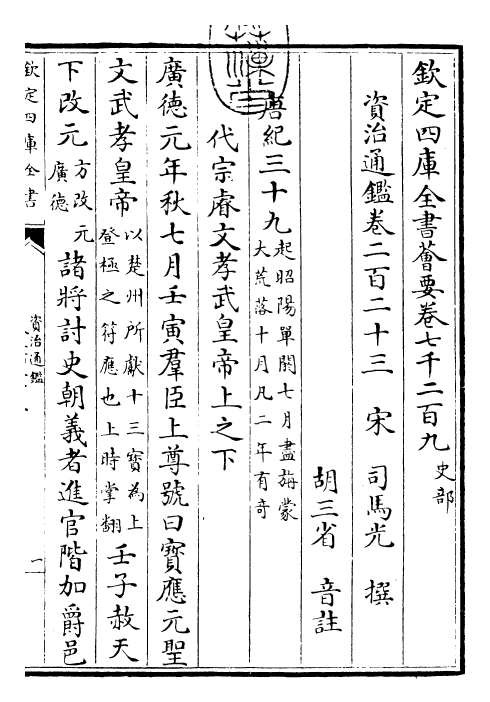 欽定四庫全書薈要卷七千二百九 史部
資治通鑑卷二百二十三 宋 司馬光 撰
胡三省 音註
唐紀三十九 起昭陽單閼七月盡旃蒙
大荒落十月凡二年有奇
代宗睿文孝武皇帝上之下
廣德元年秋七月壬寅羣臣上尊號曰寳應元聖
文武孝皇帝 以楚州所獻十三寳為上
登極之符應也上時掌翻 壬子赦天
下改元 方改元
廣德 諸將討史朝義者進官階加爵邑
欽定四庫全書
資治通鑑
一